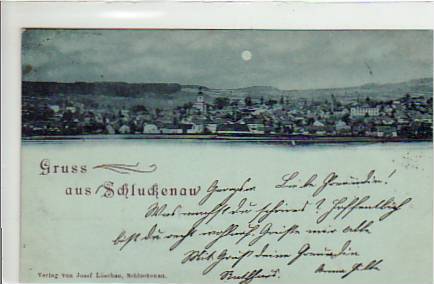 Gruss
aus Schluckenau
Liebe Freundin!
Was machst du schönes? Hoffentlich
bist du recht wohl auf. Grüße mir alle
Mit Gruß deine Freundin
Anna
Verlag von Josef Löschau, Schluckenau.